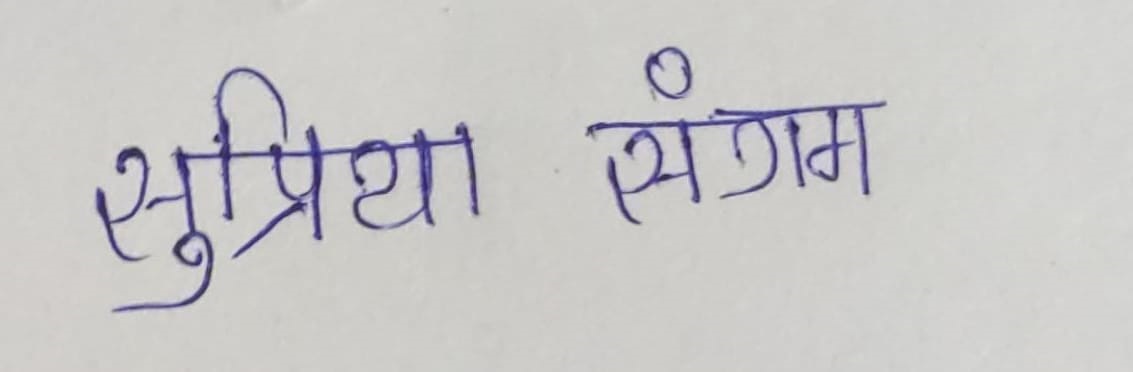 सुप्रिया संगम